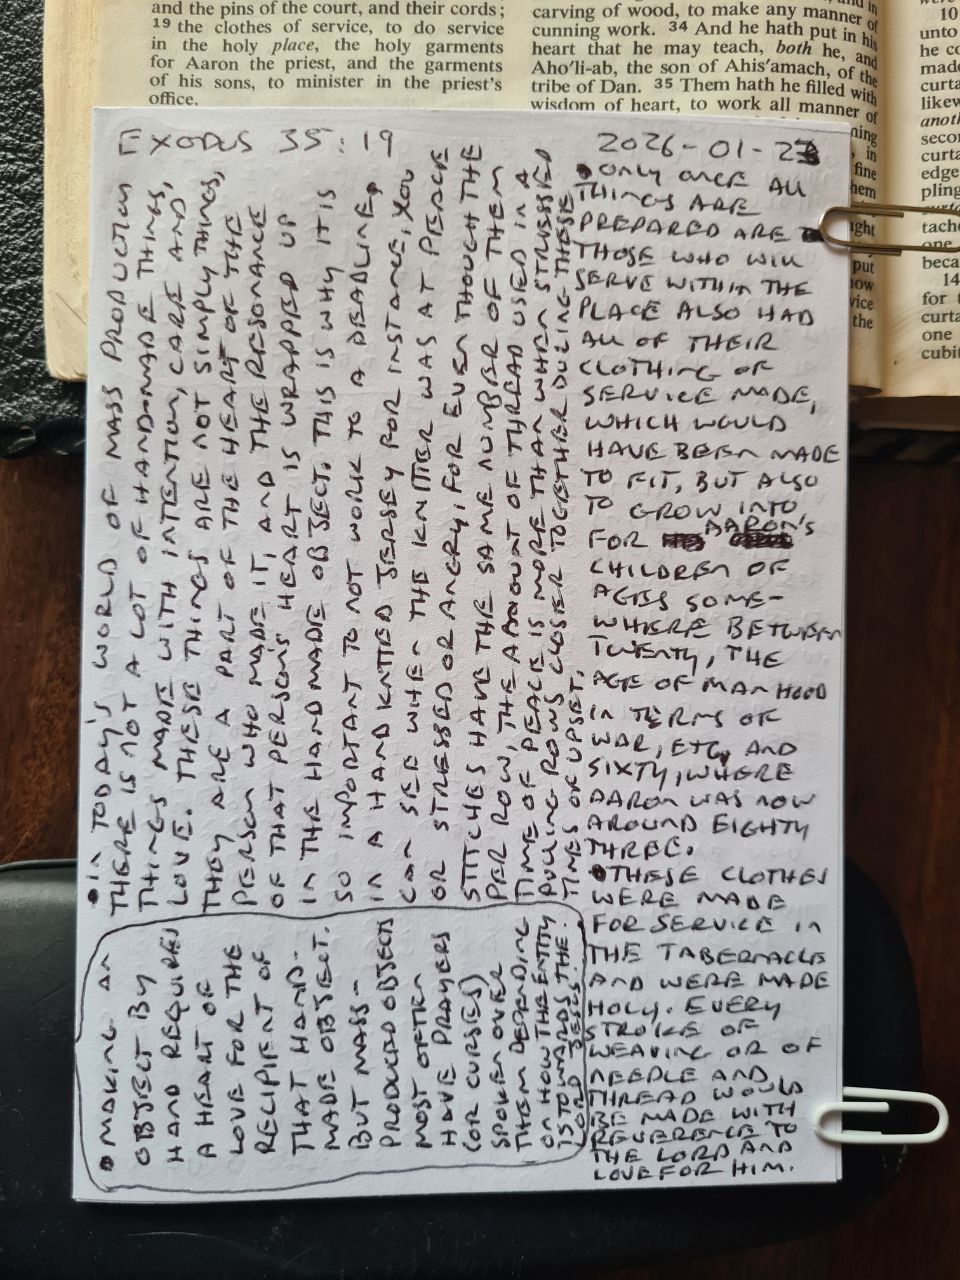 and the pins of the court, and their cords;
19 the clothes of service, to do service
in the holy place, the holy garments
for Aaron the priest, and the garments
of his sons, to minister in the priest's
office.
carving of wood, to make any manner of
cunning work. 34 And he hath put in his
heart that he may teach, both he, and
Aho'li-ab, the son of Ahis'amach, of the
tribe of Dan. 35 Them hath he filled with
wisdom of heart, to work all manner of
ning
in
fine
hem
ught
put
now
vice
the
10
unto
he co
made
curta
likew
anoth
secon
curta
edge
pling
tache
one
beca
14
for t
curta
one
cubit
EXODUS 35:19
2026-01-23
•ONLY ONCE ALL
THINGS ARE
PREPARED ARE
THOSE WHO WILL
SERVE WITHIN THE
PLACE ALSO HAD
ALL OF THEIR
CLOTHING OF
SERVICE MADE,
WHICH WOULD
HAVE BEEN MADE
TO FIT, BUT ALSO
TO GROW INTO
FOR AARON'S
CHILDREN OF
AGES SOME-
WHERE BETWEEN
TWENTY, THE
AGE OF MANHOOD
IN TERMS OF
WAR, ETC, AND
SIXTY, WHERE
AARON WAS NOW
AROUND EIGHTY
THREE.
•THESE CLOTHES
WERE MADE
FOR SERVICE IN
THE TABERNACLE
AND WERE MADE
HOLY. EVERY
STROKE OF
WEAVING OR OF
NEEDLE AND
THREAD WOULD
BE MADE WITH
REVERENCE TO
THE LORD AND
LOVE FOR HIM.
•IN TODAY'S WORLD OF MASS PRODUCTION
THERE IS NOT A LOT OF HAND-MADE THINGS,
THINGS MADE WITH INTENTION, CARE AND
LOVE. THESE THINGS ARE NOT SIMPLY THINGS,
THEY ARE A PART OF THE HEART OF THE
PERSON WHO MADE IT, AND THE RESONANCE
OF THAT PERSON'S HEART IS WRAPPED UP
IN THE HAND MADE OBJECT. THIS IS WHY IT IS
SO IMPORTANT TO NOT WORK TO A DEADLINE,
IN A HAND KNITTED JERSEY FOR INSTANCE, YOU
CAN SEE WHEN THE KNITTER WAS AT PEACE
OR STRESSED OR ANGRY, FOR EVEN THOUGH THE
STITCHES HAVE THE SAME NUMBER OF THEM
PER ROW, THE AMOUNT OF THREAD USED IN A
TIME OF PEACE IS MORE THAN WHEN STRESSED
PULLING ROWS CLOSER TOGETHER DURING THESE
TIMES OF UPSET.
•MAKING AN
OBJECT BY
HAND REQUIRES
A HEART OF
LOVE FOR THE
RECIPIENT OF
THAT HAND-
MADE OBJECT.
BUT MASS-
PRODUCED OBJECTS
MOST OFTEN
HAVE PRAYERS
(OR CURSES)
SPOKEN OVER
THEM DEPENDING
ON HOW THE ENTITY
IS TOWARDS THE
LORD JESUS.